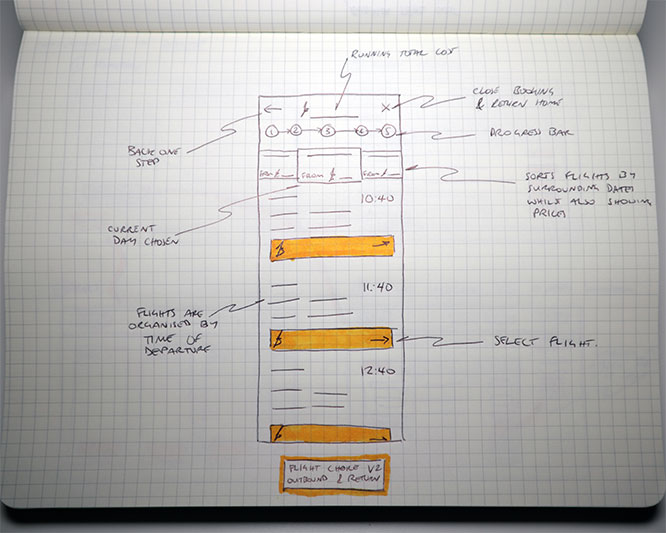 RUNNING TOTAL COST
CLOSE BOOKING
& RETURN HOME
← £ X
1 → 2 → 3 → 4 → 5
PROGRESS BAR
BACK ONE
STEP
FROM £ FROM £ FROM £
SORTS FLIGHTS BY
SURROUNDING DATES
WHILST ALSO SHOWING
PRICES
10:40
CURRENT
DAY CHOSEN
£ →
11:40
FLIGHTS ARE
ORGANISED BY
TIME OF
DEPARTURE
£ →
SELECT FLIGHT.
12:40
£ →
FLIGHT CHOICE V2
OUTBOUND & RETURN